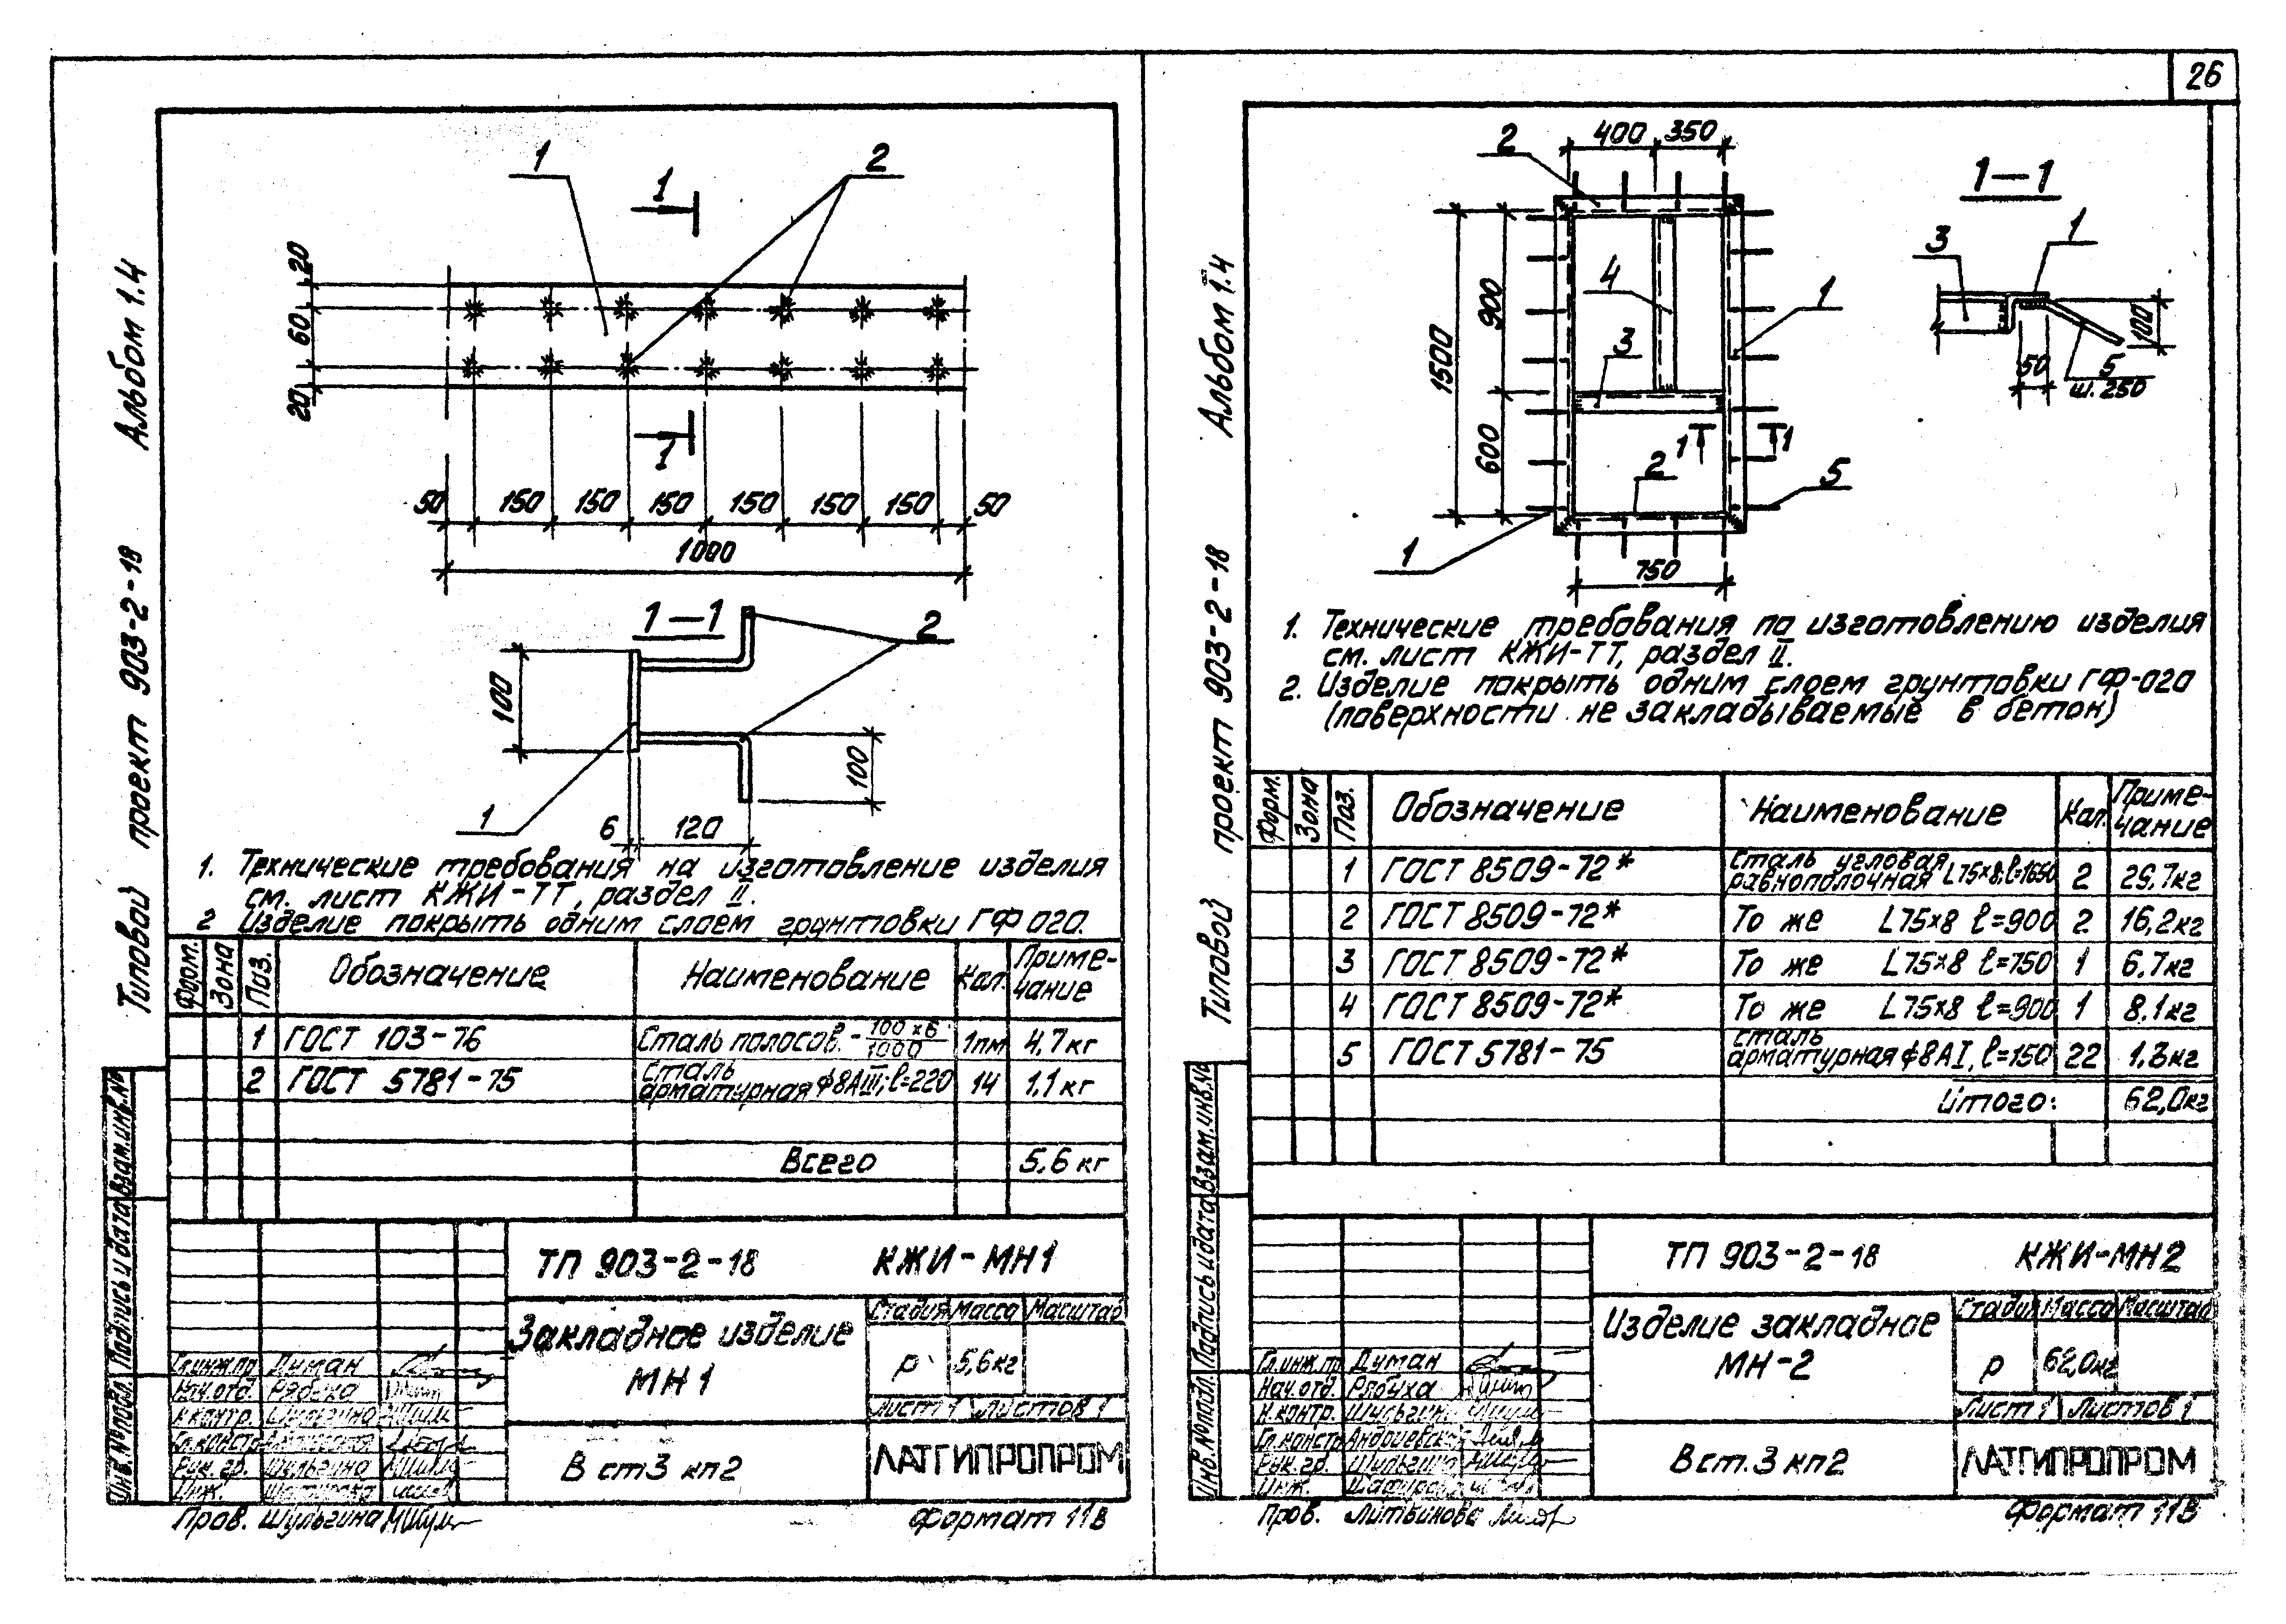 26
Типовой проект 903-2-18 Альбом 1.4
1
2
1
20
60
20
1
50 150 150 150 150 150 150 50
1000
1-1
2
100
100
1
6 120
1. Технические требования на изготовление изделия
см. лист КЖИ-ТТ, раздел II.
2 Изделие покрыть одним слоем грунтовки ГФ 020.
Форм. Зона Поз. Обозначение Наименование Кол. Приме-
чание
1 ГОСТ 103-76 Сталь полосов. - 100×6/1000 1пм 4,7кг
2 ГОСТ 5781-75 сталь
арматурная ф8АIII; l=220 14 1,1 кг
Всего 5,6 кг
ТП 903-2-18 КЖИ-МН1
Закладное изделие
МН1
Стадия Масса Масштаб
р 5,6кг
Лист 1 Листов 1
В ст3 кп2
ЛАТГИПРОПРОМ
Гл.инж.пр. Думан
Нач.отд. Рябуха
Н.контр. Шульгина
Гл.констр.
Рук. гр. Шульгина
Инж.
Пров. Шульгина
Формат 11В
Инв.№подл. Подпись и дата Взам.инв.№
Типовой проект 903-2-18 Альбом 1.4
2
400 350
1-1
4
1
3
1
3
900
1500
600
100
50
5
ш. 250
1 1
2
5
1
750
1. Технические требования по изготовлению изделия
см. лист КЖИ-ТТ, раздел II.
2. Изделие покрыть одним слоем грунтовки ГФ-020
(поверхности не закладываемые в бетон)
Форм. Зона Поз. Обозначение Наименование Кол. Приме-
чание
1 ГОСТ 8509-72* Сталь угловая
равнополочная L75×8; l=1650 2 29,7кг
2 ГОСТ 8509-72* То же L75×8 l=900 2 16,2кг
3 ГОСТ 8509-72* То же L75×8 l=750 1 6.7кг
4 ГОСТ 8509-72* То же L75×8 l=900 1 8.1кг
5 ГОСТ 5781-75 сталь
арматурная ф8АI, l=150 22 1,3кг
Итого: 62,0кг
ТП 903-2-18 КЖИ-МН2
Изделие закладное
МН-2
Стадия Масса Масштаб
р 62,0кг
Лист 1 Листов 1
В ст.3 кп2
ЛАТГИПРОПРОМ
Гл.инж.пр. Думан
Нач.отд. Рябуха
Н.контр. Шульгина
Гл.констр.
Рук.гр. Шульгина
Инж.
Пров. Литвинова
Формат 11В
Инв.№подл. Подпись и дата Взам.инв.№